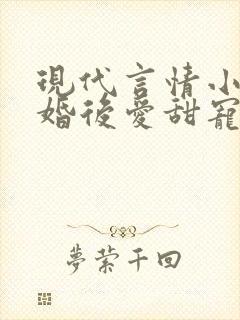 現代言情小
婚後愛甜寵
夢縈千回